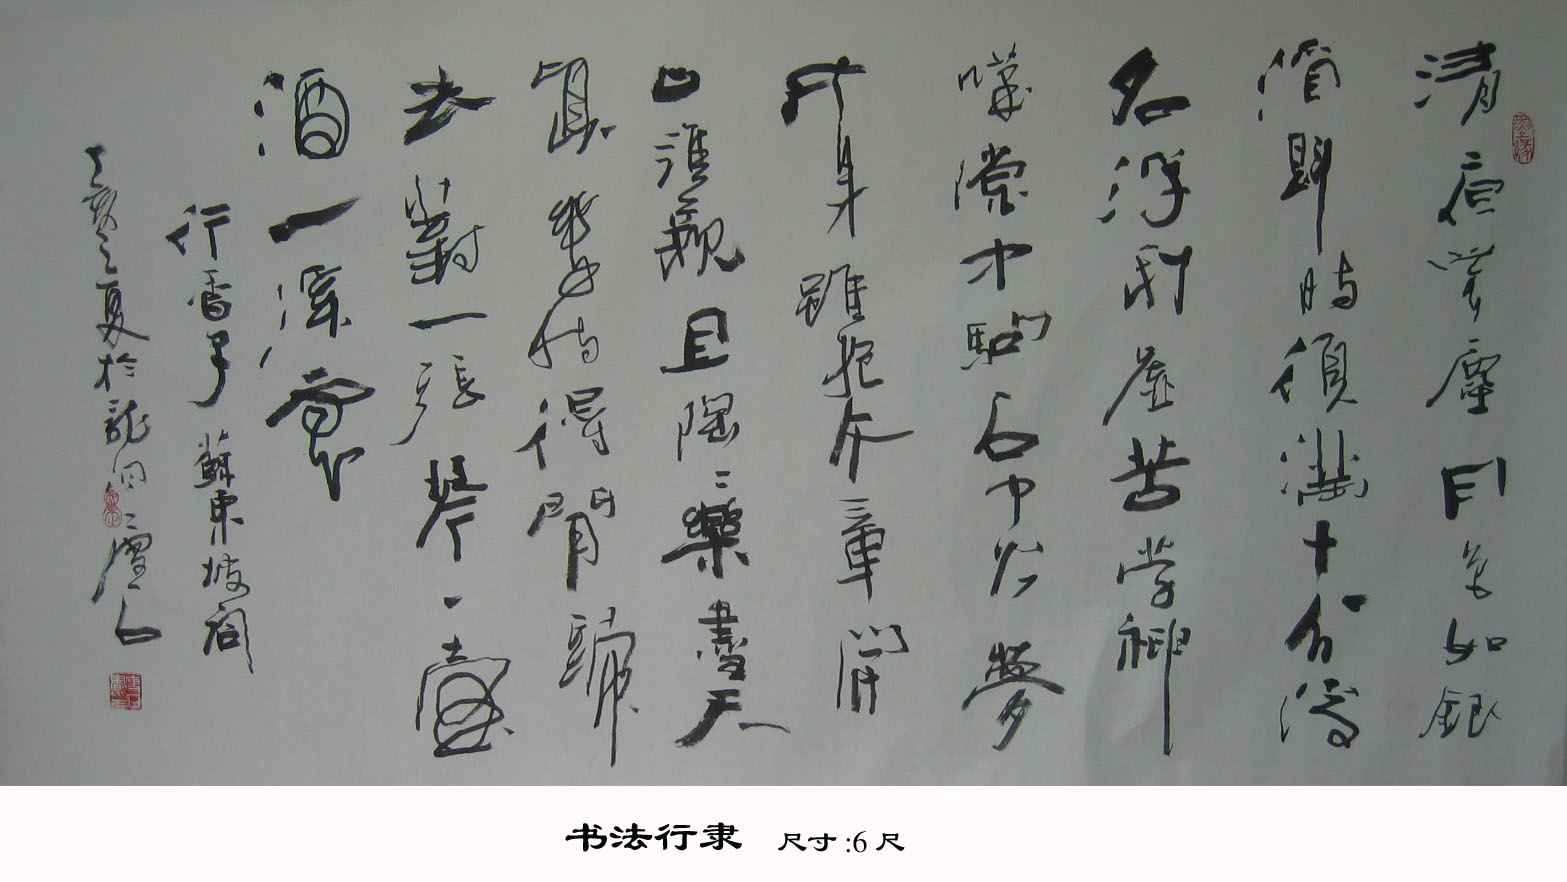 清夜無塵月色如銀
酒斟時須滿十分浮
名浮利虛苦勞神
嘆隙中駒石中火夢
中身雖抱文章開
口誰親且陶〻樂盡天
真幾時得閒歸
去對一張琴一壺
酒一溪雲
行香子 蘇東坡詞
丁亥之夏於龍洞
书法行隶 尺寸:6尺